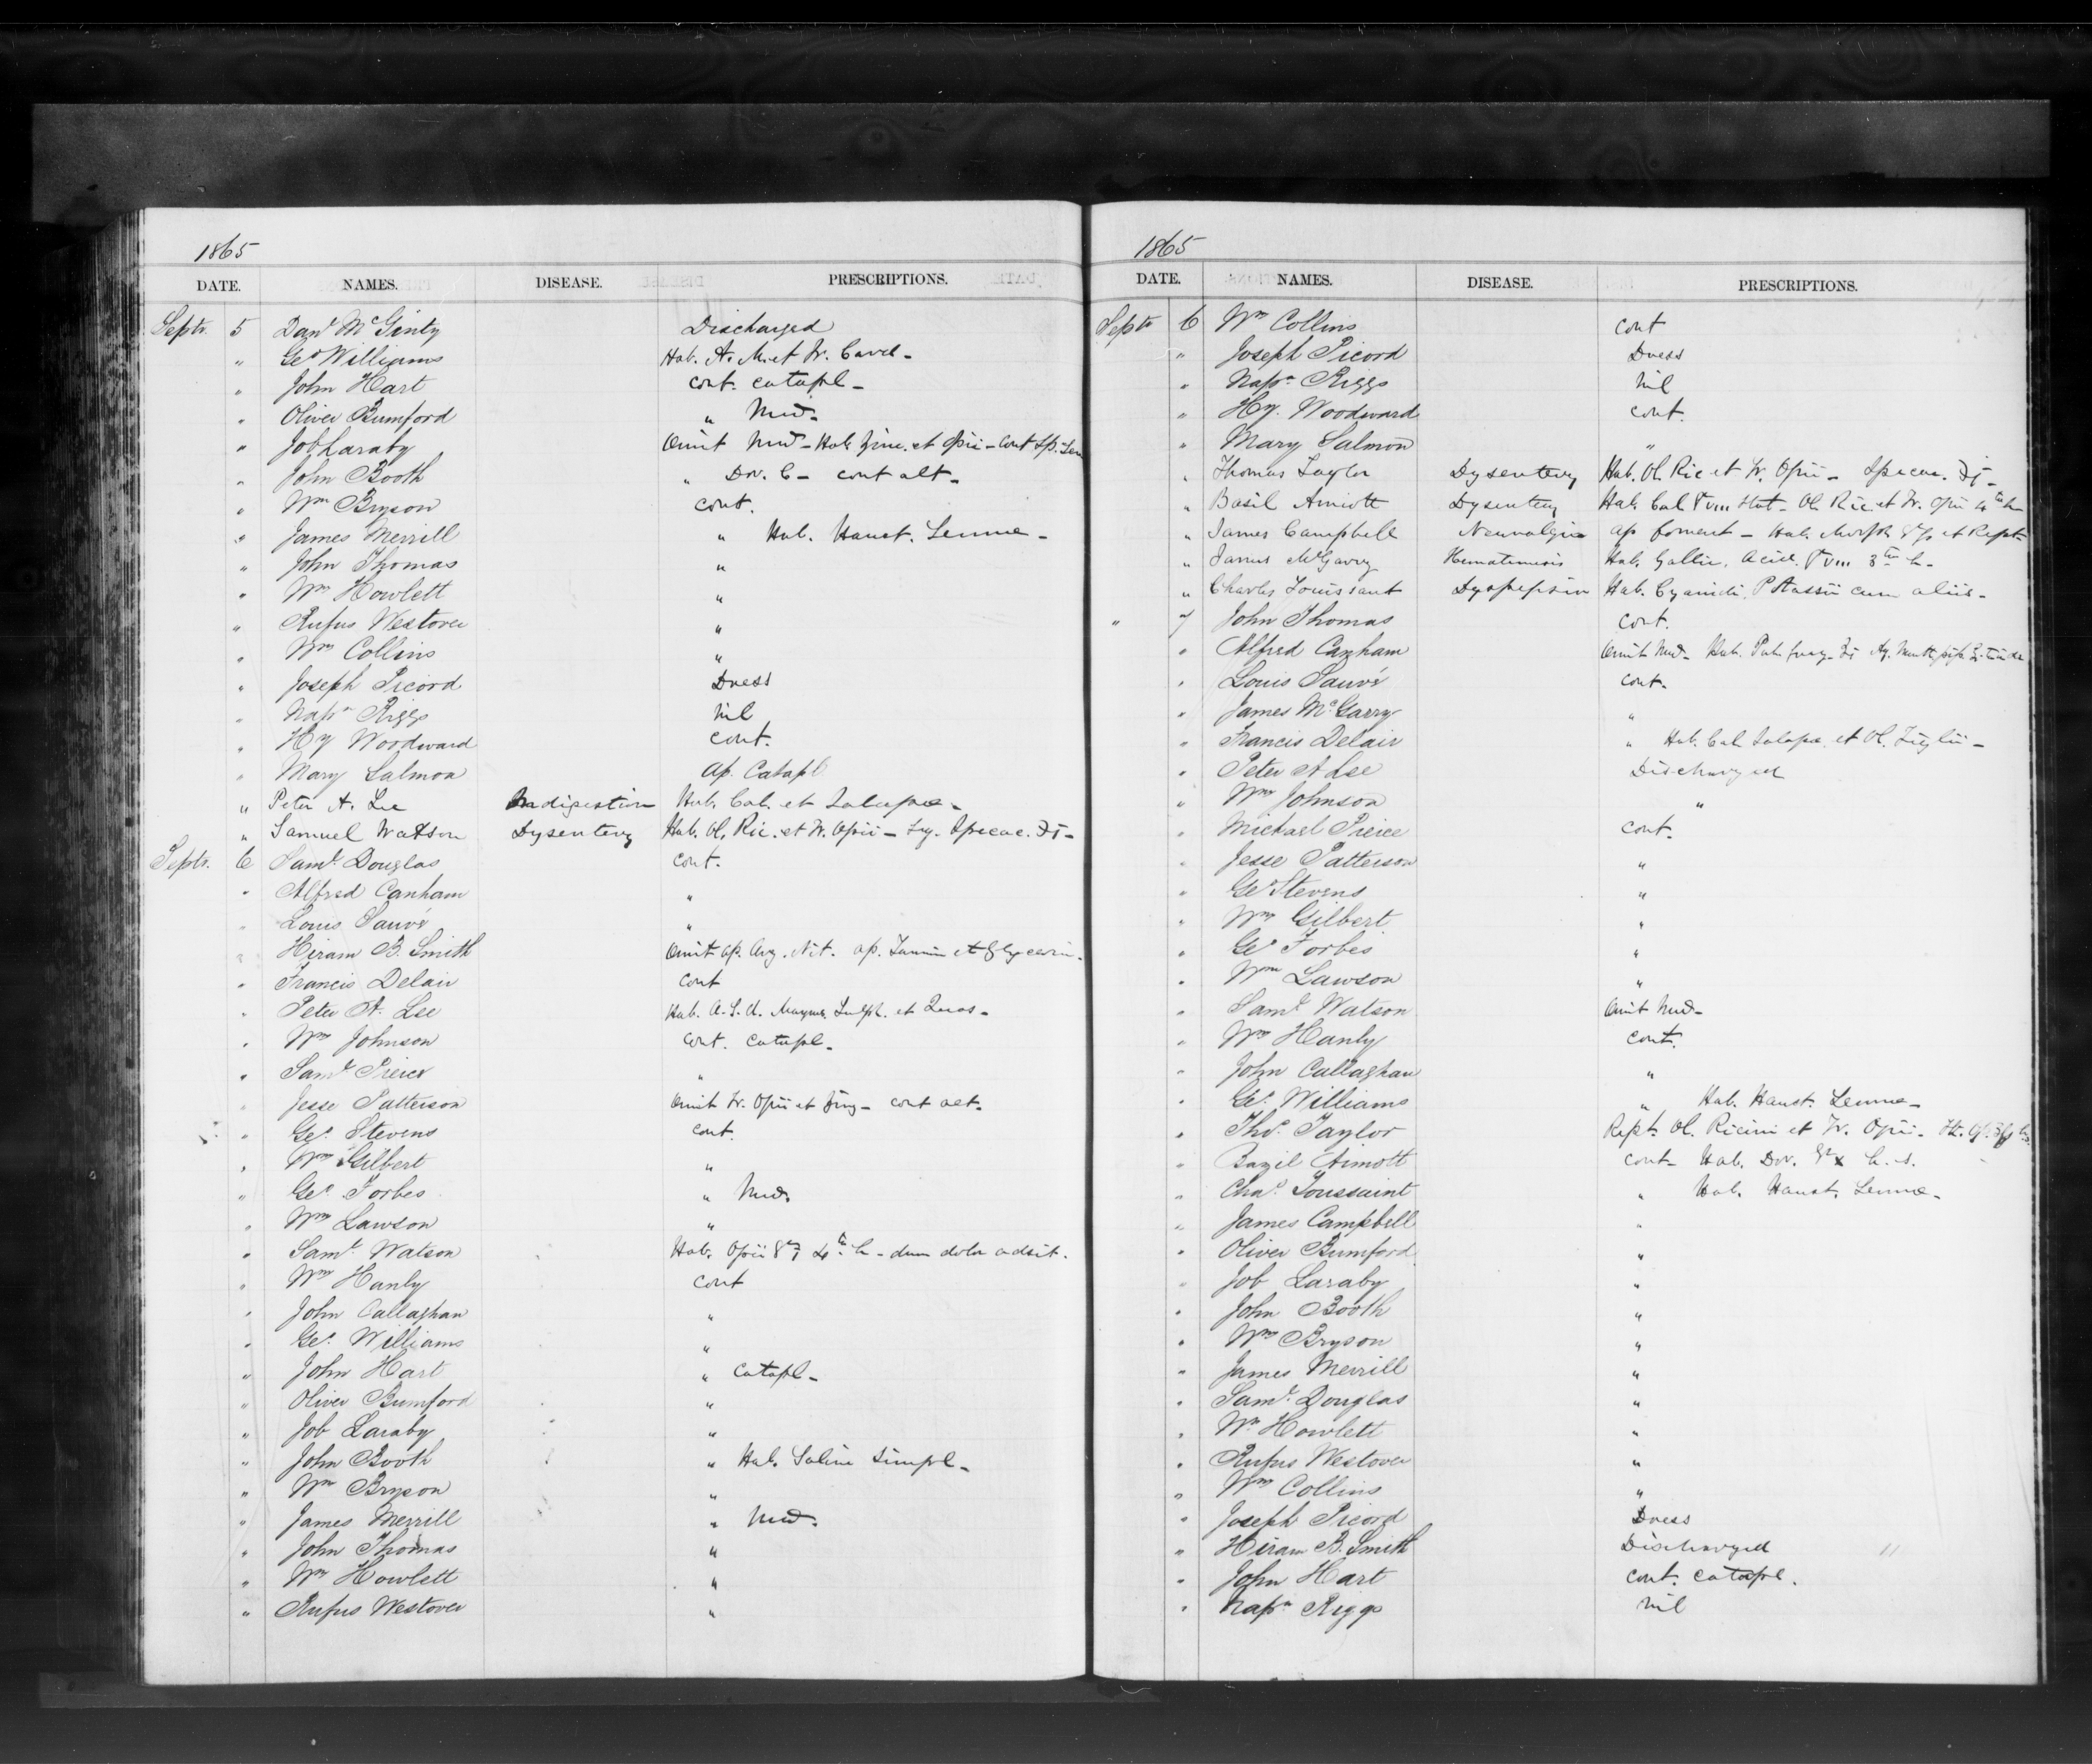 1865
DATE. NAMES. DISEASE. PRESCRIPTIONS.
Septr. 5 Danl McGinty Discharged
" Geo Williams Hab. A. M. et Tr. Card -
" John Hart cont. catapl -
" Oliver Bumford " Med.
" Job Laraby Omit Med - Hab. et Opii - Cont Sp.
" John Booth " Dov. C - cont alt -
" Wm Bryson cont.
" James Merrill " Hab. Haust. Sennae -
" John Thomas "
" Wm Howlett "
" Rufus Westover "
" Wm Collins "
" Joseph Picord Dress
" Napn Riggs Nil
" Hy Woodward cont.
" Mary Salmon Ap. Catapl
" Peter A. Lee Indigestion Hab. Cal. et Jalapae -
" Samuel Watson Dysentery Hab. Ol. Ric. et Tr. Opii - Ipecac. ʒj -
Septr. 6 Saml. Douglas cont.
" Alfred Canham "
" Louis Sauvé "
" Hiram B. Smith Omit ap. Arg. Nit. ap. Tannin et Glycerin.
" Francis Delair cont
" Peter A. Lee Hab. Sulph. et Quas -
" Wm Johnson Cont. catapl -
" Saml Pierce "
" Jesse Patterson Omit Tr. Opii et Zing - cont alt -
" Geo. Stevens cont.
" Wm Gilbert "
" Geo. Forbes " Med.
" Wm Lawson "
" Saml. Watson Hab. Opii gr j 4tâ h - dum dolor adsit.
" Wm Hanly cont
" John Callaghan "
" Geo. Williams "
" John Hart " catapl -
" Oliver Bumford "
" Job Laraby "
" John Booth " Hab. Saline Simpl -
" Wm Bryson "
" James Merrill " Med.
" John Thomas "
" Wm Howlett "
" Rufus Westover "
1865
DATE. NAMES. DISEASE. PRESCRIPTIONS.
Septr 6 Wm Collins cont
" Joseph Picord Dress
" Napn Riggs Nil
" Hy. Woodward cont.
" Mary Salmon "
" Thomas Taylor Dysentery Hab. Ol. Ric et Tr. Opii - Ipecac. ʒj -
" Basil Amiott Dysentery Hab. Cal gr viii stat - Ol. Ric. et Tr. Opii 4tâ h
" James Campbell Neuralgia ap foment - Hab. Morph et Rept.
" James McGarry Hematemesis Hab. Gallic. Acid. gr viii 3tiâ h -
" Charles Touissant Dyspepsia Hab. Cyanidi. Potassii cum aliis -
" 7 John Thomas cont.
" Alfred Canham Omit Med - Hab. Aq. Menth pip
" Louis Sauvé cont.
" James McGarry "
" Francis Delair " Hab. Cal Jalapae et Ol. Tiglii -
" Peter A Lee Discharged
" Wm Johnson "
" Michael Pierce cont.
" Jesse Patterson "
" Geo Stevens "
" Wm Gilbert "
" Geo Forbes "
" Wm Lawson "
" Saml Watson Omit Med -
" Wm Hanly cont.
" John Callaghan "
" Geo. Williams " Hab. Haust. Sennae -
" Thos. Taylor Rept. Ol. Ricini et Tr. Opii.
" Bazil Aimott cont - Hab. Dov. gr x h. s.
" Chas. Toussaint " Hab. Haust. Sennae -
" James Campbell "
" Oliver Bumford "
" Job Laraby "
" John Booth "
" Wm Bryson "
" James Merrill "
" Saml. Douglas "
" Wm Howlett "
" Rufus Westover "
" Wm Collins "
" Joseph Picord Dress
" Hiram B. Smith Discharged
" John Hart cont. catapl.
" Napn Riggs Nil